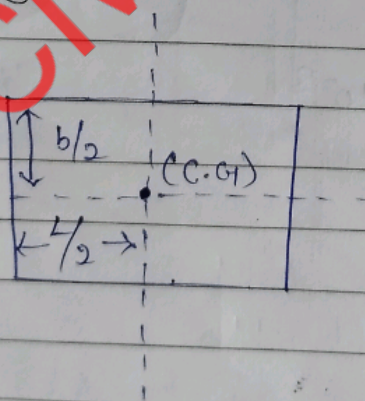 b/2
(C.G)
L/2